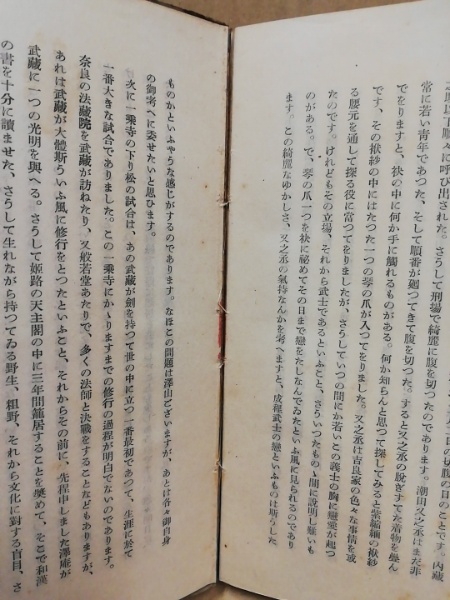 々に呼び出された。さうして刑場で綺麗に腹を切つたのです。
常に若い青年であつた、そして順番が廻つてきて腹を切つた。すると又之丞の脱ぎすてた着物を疊ん
でをりますと、袂の中に何か手に觸れるものがある。何か知らんと思つて探してみると紫縮緬の袱紗
です、その袱紗の中にはたつた一つの琴の爪が入つてをりました。又之丞は吉良家の色々な事情を或
る腰元を通して探る役に當つてをりましたが、さうしていつの間にか若いこの義士の胸に戀愛が起つ
たのです。けれどもその立場、それから武士であるといふこと、さういつたものゝ間に說明し難いも
のがある。で、琴の爪一つを袂に祕めてその日まで戀をたしなんでゐたといふ風に見られるのであり
ます。この綺麗なゆかしさ、又之丞の氣持なんかを考へますと、成程武士の戀といふものは斯うした
ものかといふやうな感じがするのであります。なほこの問題は澤山ございますが、あとは各々御自身
の御考へに委せたいと思ひます。
次に一乘寺の下り松の試合は、あの武藏が劍を持つて世の中に立つ一番最初であつて、生涯に於て
一番大きな試合でありました。この一乘寺にかゝりますまでの修行の過程が明白でないのであります。
奈良の法藏院を武藏が訪ねたり、又般若堂あたりで、多くの法師と決戰をすることなどもありますが、
あれは武藏が大體斯ういふ風に修行をとつたといふこと、それからその前に、先程申しました澤庵が
武藏に一つの光明を與へる。さうして姬路の天主閣の中に三年間籠居することを奬めて、そこで和漢
の書を十分に讀ませた、さうして生れながら持つてゐる野生、粗野、それから文化に對する盲目、さ